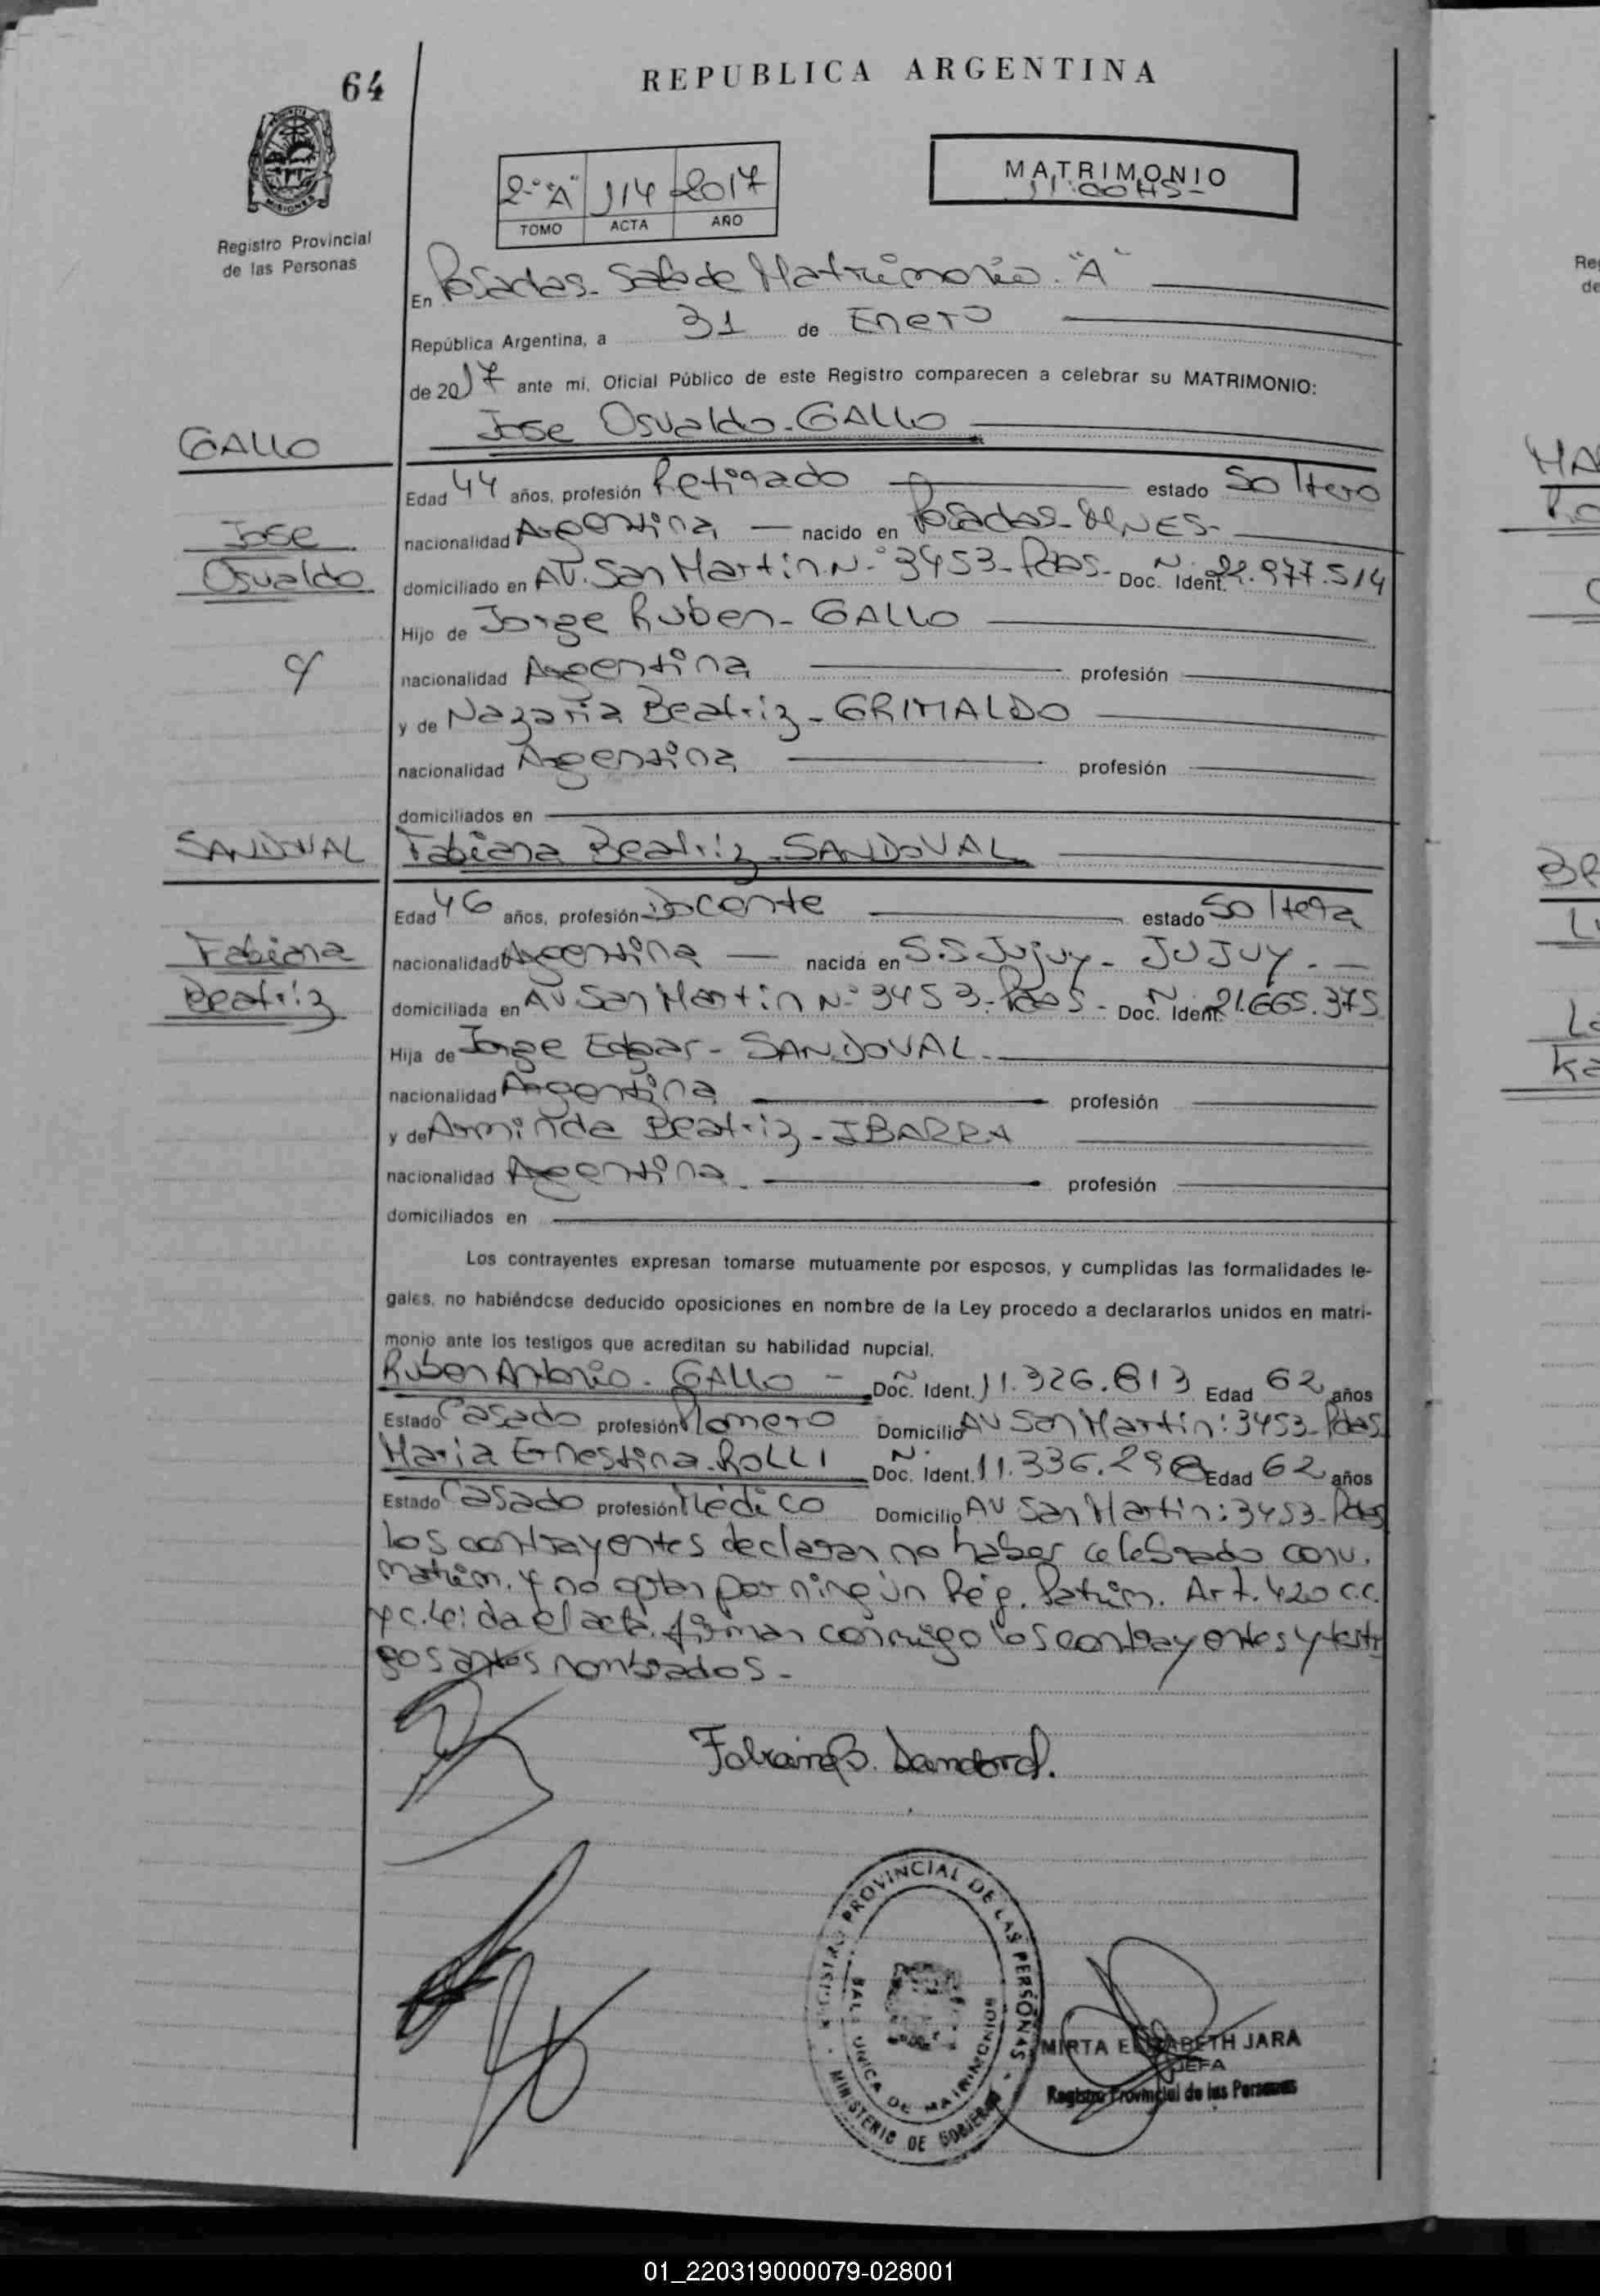 64
REPUBLICA ARGENTINA
PROVINCIA DE
MISIONES
Registro Provincial
de las Personas
2º "A" 114 2017
TOMO ACTA AÑO
MATRIMONIO
11:00HS-
En Posadas - Sala de Matrimonio. "A"
República Argentina, a 31 de Enero
de 2017 ante mi, Oficial Público de este Registro comparecen a celebrar su MATRIMONIO:
GALLO
Jose Osvaldo - GALLO
Edad 44 años, profesión Retirado estado Soltero
Jose
nacionalidad Argentina — nacido en Posadas-
Osvaldo
domiciliado en AV. San Martin Nº 3453-Pdas- Doc. Ident. N. 22.977.514
Hijo de Jorge Ruben - GALLO
y
nacionalidad Argentina profesión
y de Nazaria Beatriz - GRIMALDO
nacionalidad Argentina profesión
domiciliados en
SANDOVAL
Fabiana Beatriz - SANDOVAL
Edad 46 años, profesión Docente estado Soltera
Fabiana
nacionalidad Argentina — nacida en S.S Jujuy - JUJUY. —
Beatriz
domiciliada en AV San Martin Nº 3453-Pdas - Doc. Ident. N. 21.665.375
Hija de Jorge Edgar - SANDOVAL
nacionalidad Argentina profesión
y de Arminda Beatriz - IBARRA
nacionalidad Argentina. profesión
domiciliados en
Los contrayentes expresan tomarse mutuamente por esposos, y cumplidas las formalidades le-
gales, no habiéndose deducido oposiciones en nombre de la Ley procedo a declararlos unidos en matri-
monio ante los testigos que acreditan su habilidad nupcial.
Ruben Antonio - GALLO - Doc. Ident. N 11.326.813 Edad 62 años
Estado Casado profesión Plomero Domicilio AV San Martin: 3453-Pdas
Maria Ernestina - ROLLI Doc. Ident. N. 11.336.298 Edad 62 años
Estado Casado profesión Médico Domicilio AV San Martin: 3453-Pdas
los contrayentes declaran no haber celebrado conv.
matrim. y no optan por ningún Rég. Patrim. Art. 420 C.C.
y C. Leida el acta, firman conmigo los contrayentes y testi
gos antes nombrados -
Fabiana B. Sandoval.
REGISTRO PROVINCIAL DE LAS PERSONAS
SALA UNICA DE MATRIMONIOS
MINISTERIO DE GOBIERNO
MIRTA ELIZABETH JARA
JEFA
Registro Provincial de las Personas
01_220319000079-028001